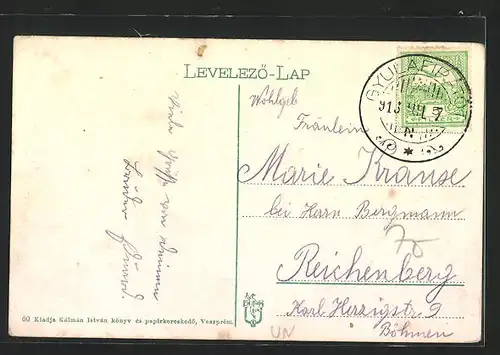 LEVELEZŐ-LAP
GYULAFIRÁTÓT
913
Wohlgeb
Fräulein
Marie Krause
bei Herrn Bergmann
Reichenberg
Karl Herzigstr 9
Böhmen
Viele Grüße von deinem
Bruder Eduard.
60 Kiadja Kálmán István könyv és papírkereskedő, Veszprém.
UN